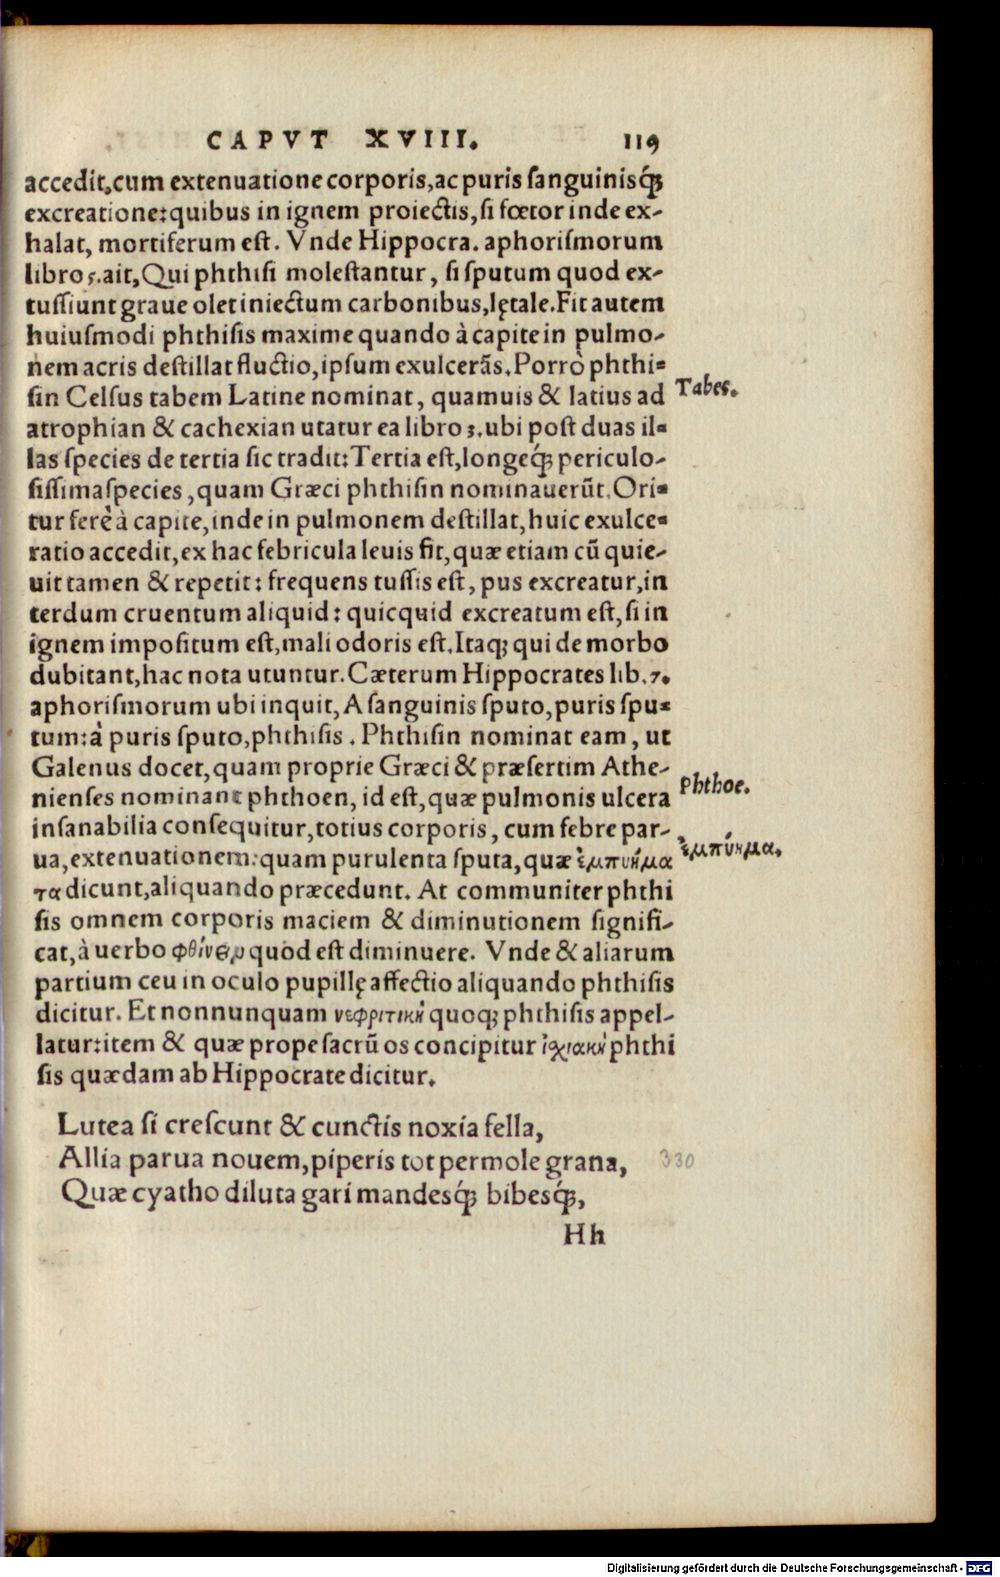 CAPVT XVIII. 119
accedit,cum extenuatione corporis,ac puris ſanguinisq́ꝫ
excreatione:quibus in ignem proiectis,ſi fœtor inde ex-
halat, mortiferum eſt. Vnde Hippocra. aphoriſmorum
libro 5.ait,Qui phthiſi moleſtantur, ſi ſputum quod ex-
tuſſiunt graue olet iniectum carbonibus,lętale.Fit autem
huiuſmodi phthiſis maxime quando à capite in pulmo-
nem acris deſtillat fluctio,ipſum exulcerãs.Porrò phthi-
ſin Celſus tabem Latine nominat, quamuis & latius ad
Tabes.
atrophian & cachexian utatur ea libro 3.ubi poſt duas il-
las ſpecies de tertia ſic tradit:Tertia eſt,longeq́ꝫ periculo-
ſiſſima ſpecies,quam Græci phthiſin nominauerũt.Ori-
tur ferè à capite,inde in pulmonem deſtillat,huic exulce-
ratio accedit,ex hac febricula leuis fit,quæ etiam cũ quie-
uit tamen & repetit: frequens tuſſis eſt, pus excreatur,in
terdum cruentum aliquid: quicquid excreatum eſt,ſi in
ignem impoſitum eſt,mali odoris eſt.Itaqꝫ qui de morbo
dubitant,hac nota utuntur.Cæterum Hippocrates lib.7.
aphoriſmorum ubi inquit,A ſanguinis ſputo,puris ſpu-
tum:à puris ſputo,phthiſis. Phthiſin nominat eam, ut
Galenus docet,quam proprie Græci & præſertim Athe-
Phthoe.
nienſes nominant phthoen, id eſt,quæ pulmonis ulcera
inſanabilia conſequitur,totius corporis, cum febre par-
ἐμπύημα.
ua,extenuationem:quam purulenta ſputa,quæ ἐμπυήμα
τα dicunt,aliquando præcedunt. At communiter phthi
ſis omnem corporis maciem & diminutionem ſignifi-
cat,à uerbo φθίνειν quod eſt diminuere. Vnde & aliarum
partium ceu in oculo pupillę affectio aliquando phthiſis
dicitur. Et nonnunquam νεφριτικὴ quoqꝫ phthiſis appel-
latur:item & quæ prope ſacrũ os concipitur ἰχιακὴ phthi
ſis quædam ab Hippocrate dicitur.
Lutea ſi creſcunt & cunctis noxia fella,
Allia parua nouem,piperis tot permole grana, 330
Quæ cyatho diluta gari mandesq́ꝫ bibesq́ꝫ,
Hh
Digitalisierung gefördert durch die Deutsche Forschungsgemeinschaft - DFG